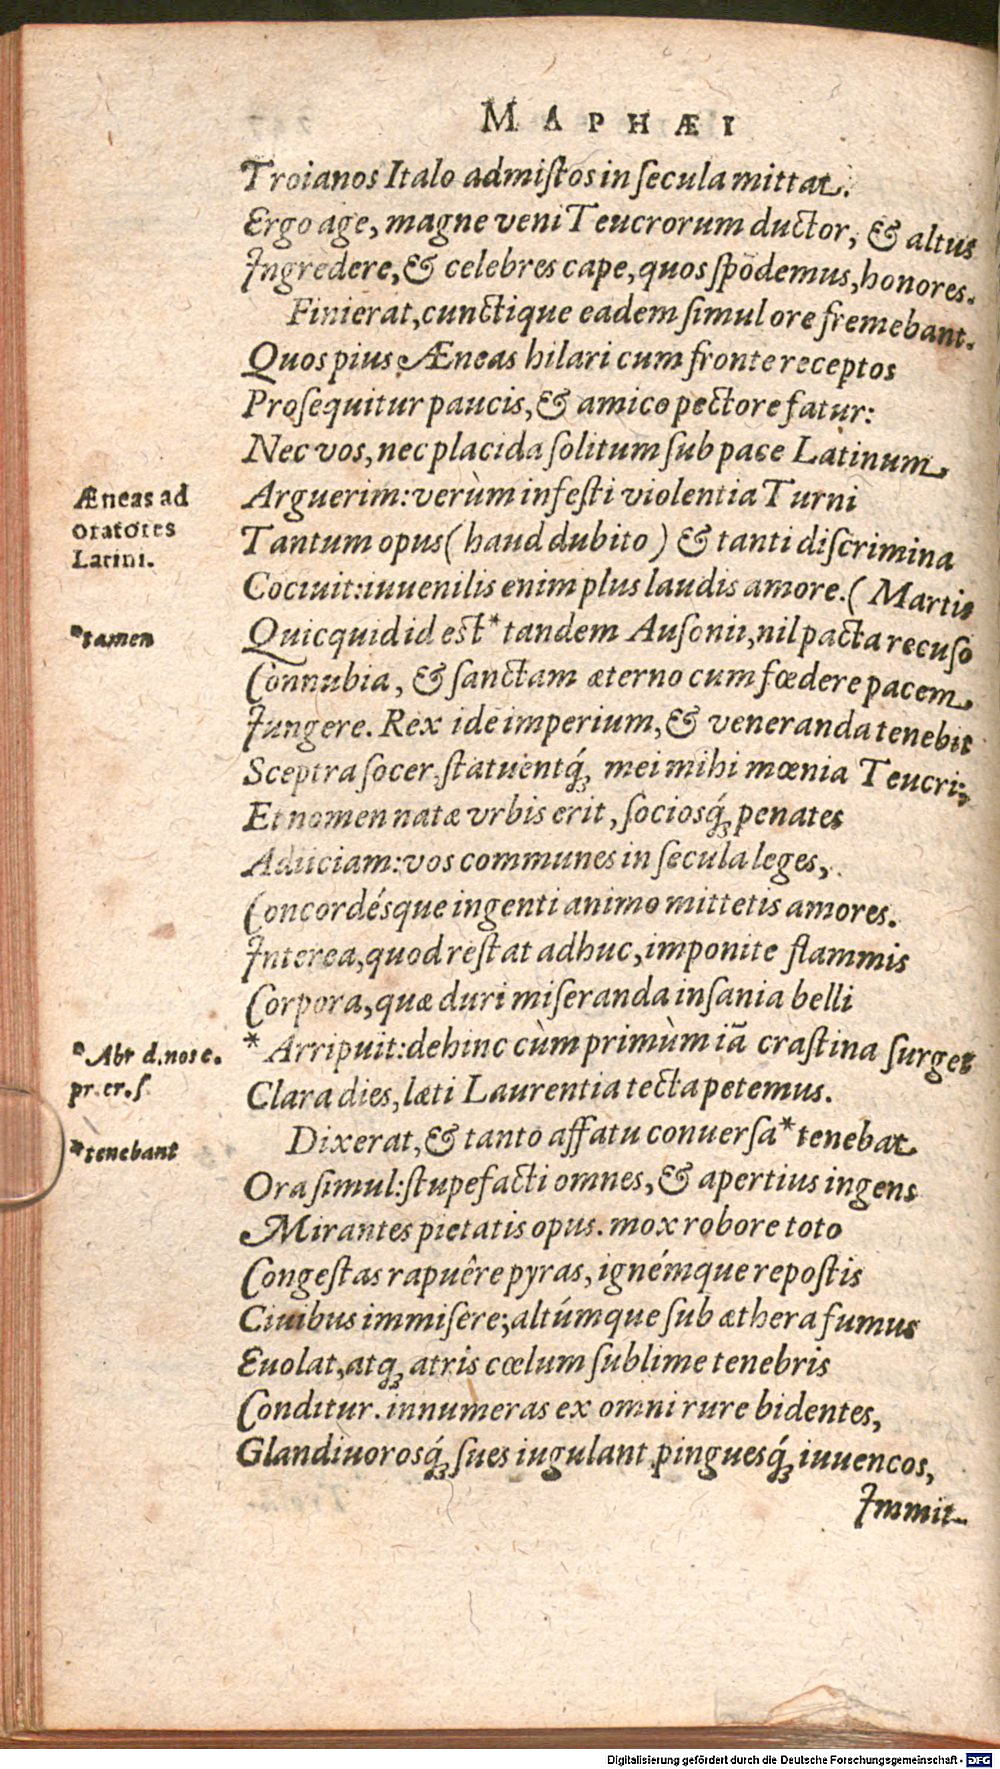 MAPHÆI
Troianos Italo admiſtos in ſecula mittat.
Ergo age, magne veni Teucrorum ductor, & altus
Ingredere, & celebres cape, quos ſpõdemus, honores.
Finierat, cunctique eadem ſimul ore fremebant.
Quos pius Æneas hilari cum fronte receptos
Proſequitur paucis, & amico pectore fatur:
Nec vos, nec placida ſolitum ſub pace Latinum
Æneas ad
oratores
Latini.
Arguerim: verùm infeſti violentia Turni
Tantum opus (haud dubito) & tanti diſcrimina
Cociuit: iuuenilis enim plus laudis amore. (Martis
*tamen
Quicquid id eſt* tandem Auſonii, nil pacta recuſo
Connubia, & ſanctam æterno cum fœdere pacem
Jungere. Rex idē imperium, & veneranda tenebit
Sceptra ſocer, ſtatuentq́; mei mihi mœnia Teucri;
Et nomen natæ vrbis erit, ſociosq́; penates
Adiiciam: vos communes in ſecula leges,
Concordésque ingenti animo mittetis amores.
Interea, quod reſtat adhuc, imponite flammis
Corpora, quæ duri miſeranda inſania belli
* Abr d. nos e.
pr. er. ſ
* Arripuit: dehinc cùm primùm iã craſtina ſurget
Clara dies, læti Laurentia tecta petemus.
*tenebant
Dixerat, & tanto affatu conuerſa* tenebat
Ora ſimul: ſtupefacti omnes, & apertius ingens
Mirantes pietatis opus. mox robore toto
Congeſtas rapuêre pyras, ignémque repoſtis
Ciuibus immiſere; altúmque ſub æthera fumus
Euolat, atq; atris cœlum ſublime tenebris
Conditur. innumeras ex omni rure bidentes,
Glandiuorosq́; ſues iugulant pinguesq́; iuuencos,
Immit-
Digitalisierung gefördert durch die Deutsche Forschungsgemeinschaft - DFG